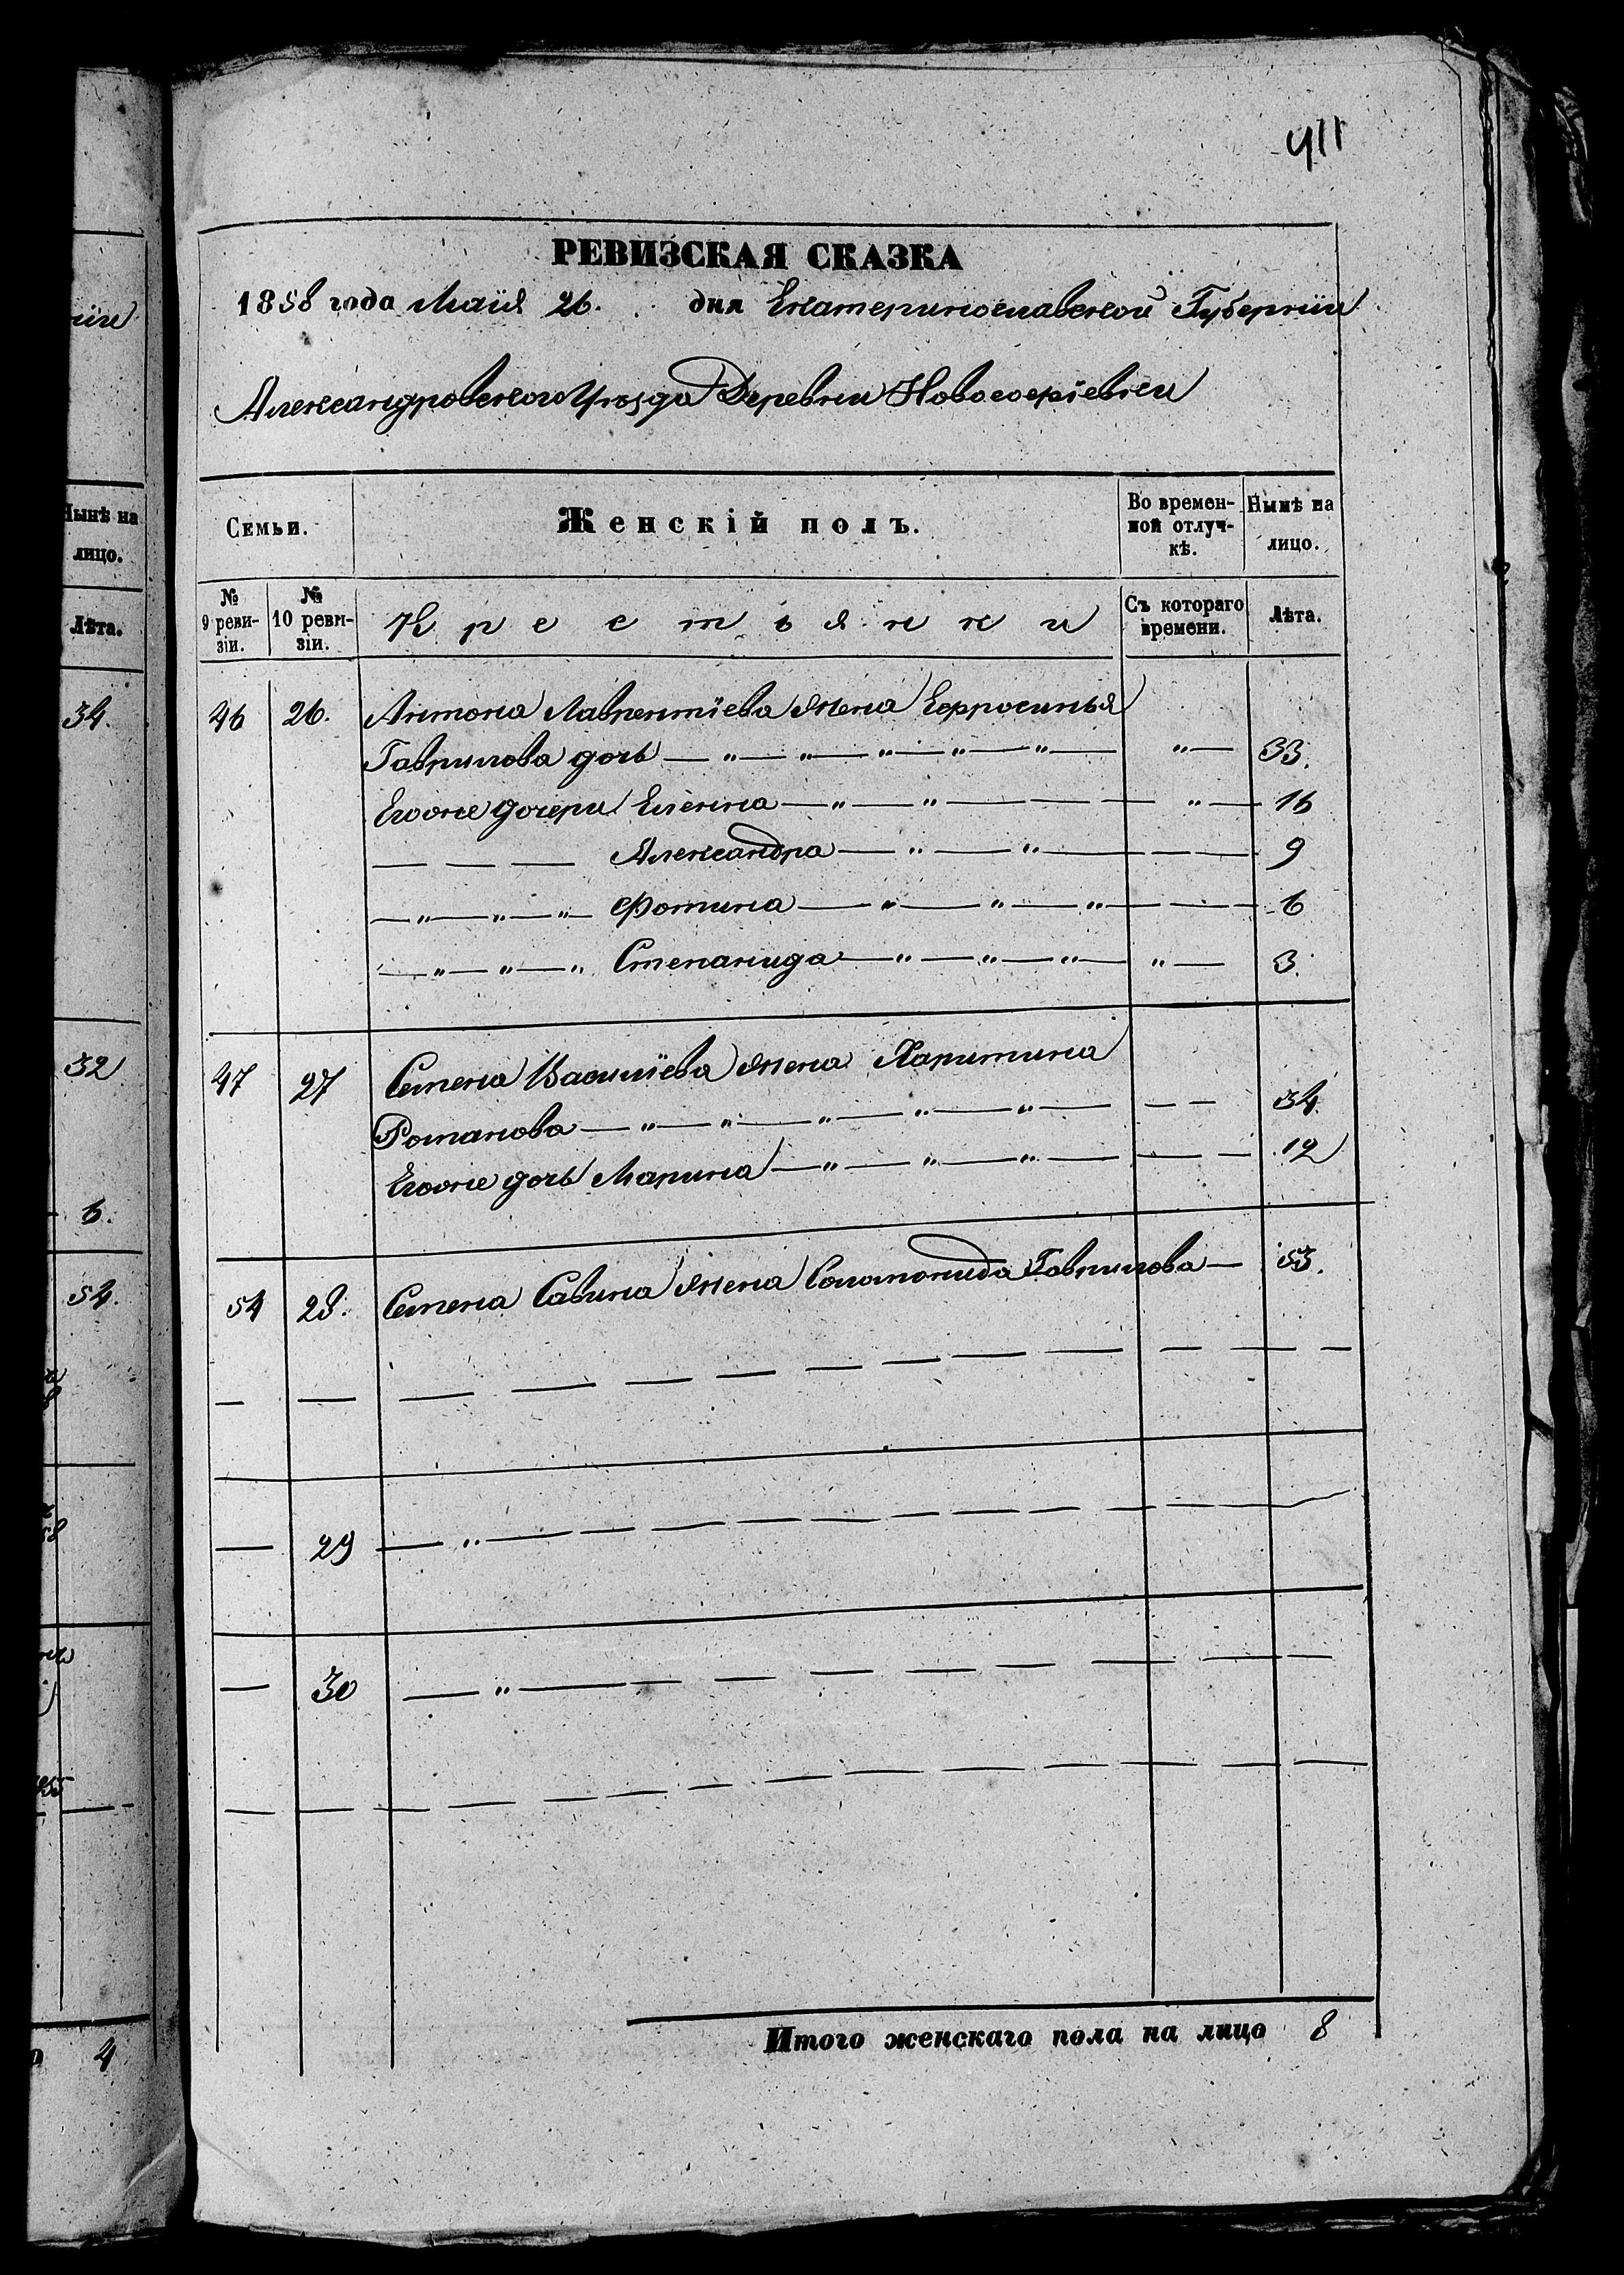 411
РЕВИЗСКАЯ СКАЗКА
1858 года Маія 26. дня Екатеринославской Губерніи
Александровского Уѣзда Деревни Новософіевки
Семьи.
Женскій полъ.
Во времен-
ной отлуч-
кѣ.
Нынѣ на
лицо.
№
9 реви-
зіи.
№
10 реви-
зіи.
Крестьянки
Съ котораго
времени.
Лѣта.
46 26. Антона Лаврентіева жена Ефросинья
Гаврилова дочь — „ — „ — „ — „ — „ — „ — 33.
Егоже дочери Елена — „ — „ — — — „ — 16
— — — Александра — „ — „ — — — 9
— „ — „ — „ — Фотина — „ — „ — „ — — — 6
— „ — „ — „ Степанида — „ — „ — „ — „ — 3.
47 27 Семена Василіева жена Харитина
Романова — „ — „ — „ — „ — „ — — — 34.
Егоже дочь Марина — „ — „ — „ — — — 12
54 28. Семена Савина жена Соломонида Гаврилова — 53.
— — — — — — — — — — — — —
— 29 — „ — — — — — — — — — —
— 30 — „ — — — — — — — — —
— — — — — — — — — — — — —
Итого женскаго пола на лицо 8
ніи
Нынѣ на
лицо.
Лѣта.
34.
32
6.
54.
4